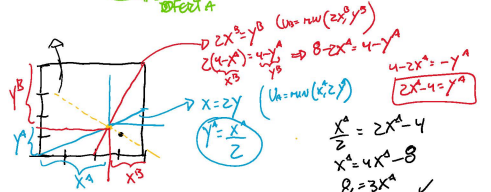 Ofert A
2X^B = Y^B (U_B = min(2X^B, Y^B)
2(4-X^A) = 4-Y^A ⇒ 8-2X^A = 4-Y^A
X^B Y^B
4-2X^A = -Y^A
2X^A-4 = Y^A
X = 2Y (U_A = min(X^A, 2Y^A)
Y^A = X^A/2
X^A/2 = 2X^A-4
X^A = 4X^A-8
8 = 3X^A
Y^B
Y^A
X^A X^B